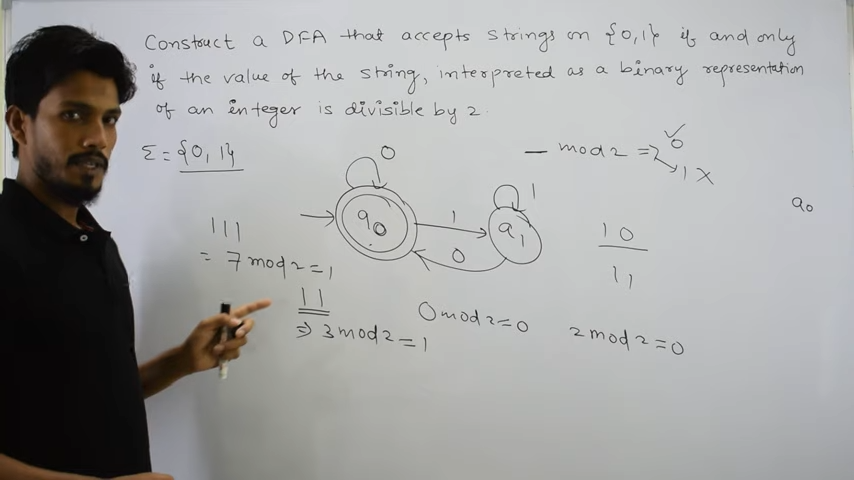 Construct a DFA that accepts strings on {0,1} if and only
if the value of the string, interpreted as a binary representation
of an integer is divisible by 2.
Σ = {0, 1}
0
— mod 2 = 0 ✓
1 X
q0
1
q0
1
q1
0
10
11
111
= 7 mod 2 = 1
11
⇒ 3 mod 2 = 1
0 mod 2 = 0
2 mod 2 = 0